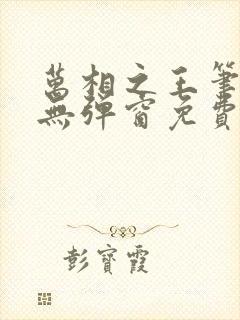 萬相之王筆
無彈窗免費
彭寶霞